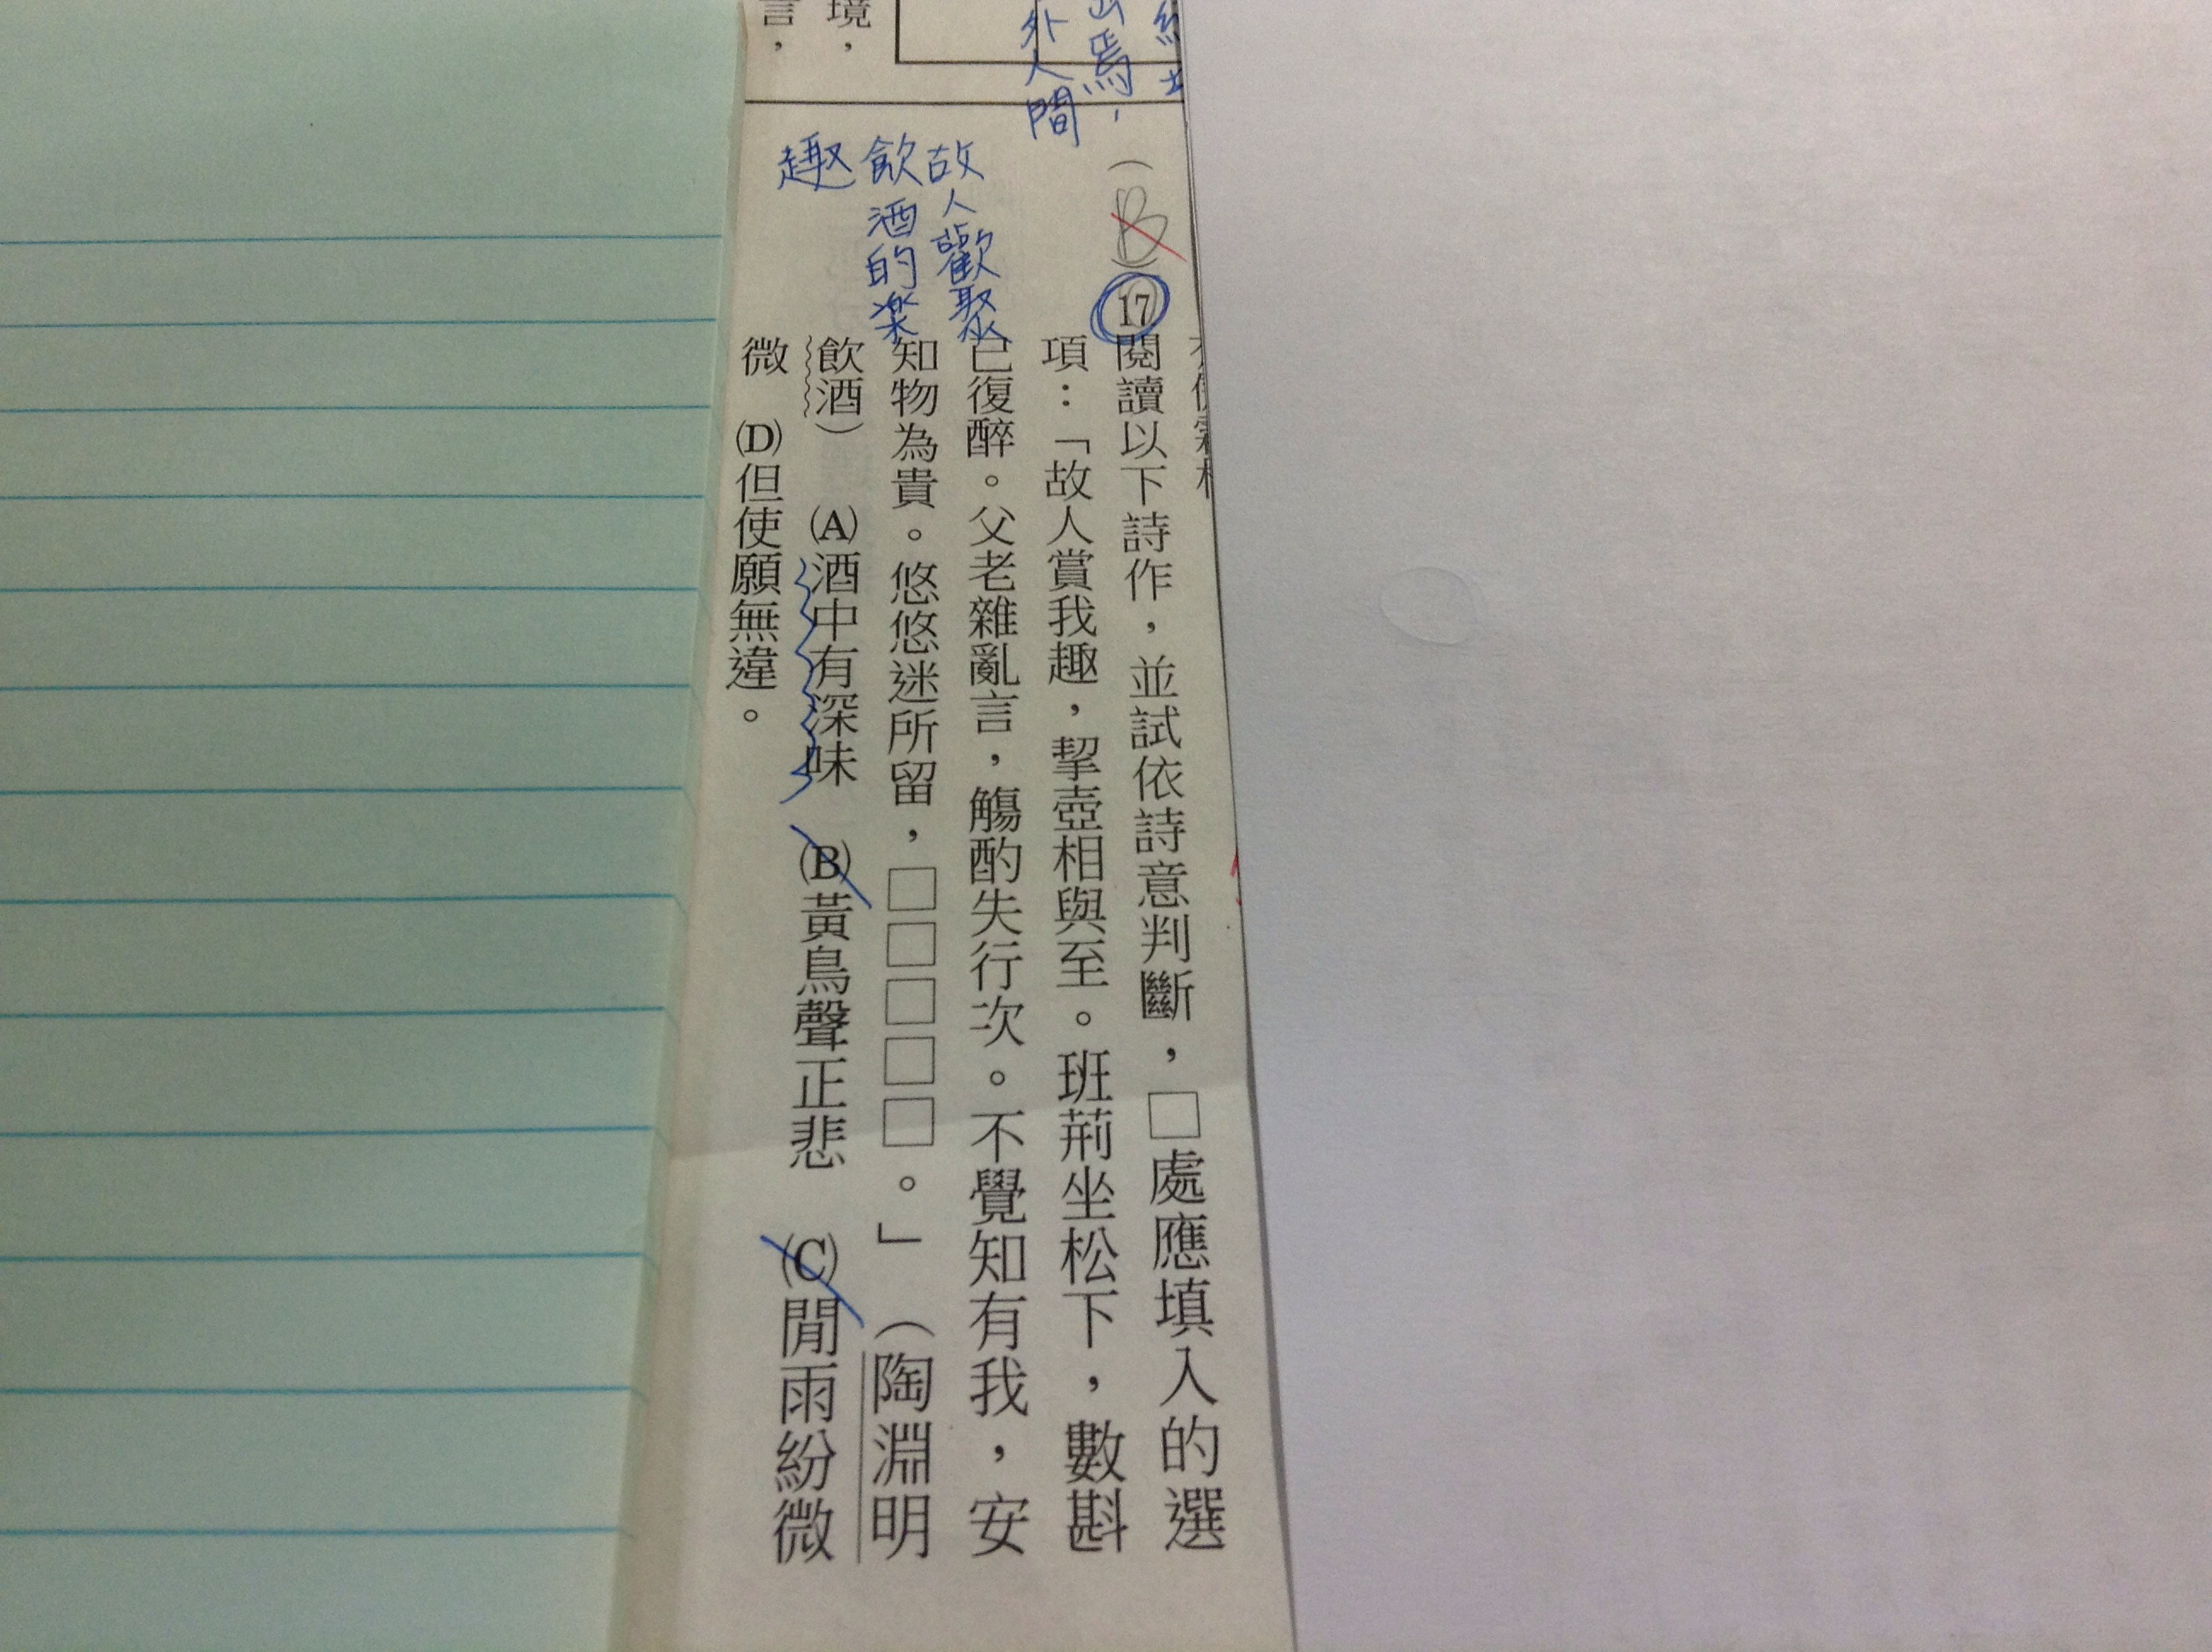 境，
言，
出焉，
外人間
(B)17閱讀以下詩作，並試依詩意判斷，□處應填入的選
項：「故人賞我趣，挈壺相與至。班荊坐松下，數斟
已復醉。父老雜亂言，觴酌失行次。不覺知有我，安
知物為貴。悠悠迷所留，□□□□□。」（陶淵明
飲酒） (A)酒中有深味 (B)黃鳥聲正悲 (C)閒雨紛微
微 (D)但使願無違。
故人歡聚
飲酒的樂
趣